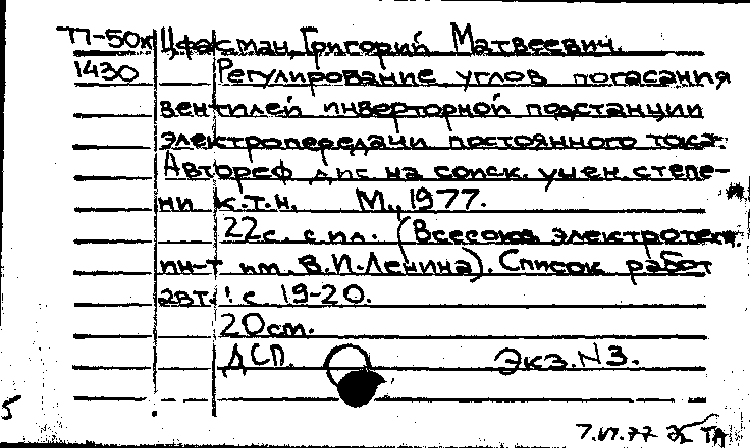 77-50к Цфасман, Григорий Матвеевич.
1430 Регулирование углов погасания
вентилей инверторной подстанции
электропередачи постоянного тока.
Автореф. дис. на соиск. учен. степе-
ни к.т.н. М., 1977.
22с. с ил. (Всесоюз. электротехн.
ин-т им. В.И.Ленина). Список работ
авт.: с 19-20.
20см.
ДСП. Экз.N3.
5
7.VI.77